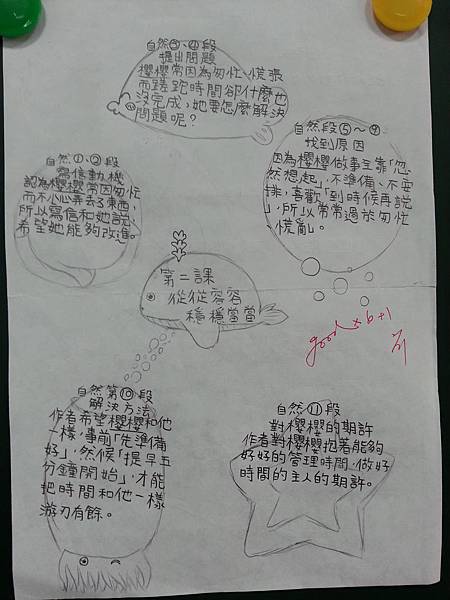 第二課
從從容容
穩穩當當
自然①、②段
寫信動機
認為櫻櫻常因匆忙
而不小心弄丟了東西,
所以寫信和她說,
希望她能夠改進。
自然③、④段
提出問題
櫻櫻常因為匆忙、慌張
而蹉跎時間卻什麼也
沒完成,她要怎麼解決
問題呢?
自然段⑤～⑨
找到原因
因為櫻櫻做事全靠「忽
然想起」,不準備、不安
排,喜歡「到時候再說
」,所以常常過於匆忙
、慌亂。
good x6+1
自然第⑩段
解決方法
作者希望櫻櫻和他
一樣,事前「先準備
好」,然候「提早五
分鐘開始」,才能
把時間和他一樣
游刃有餘。
自然⑪段
對櫻櫻的期許
作者對櫻櫻抱著能夠
好好的管理時間,做好
時間的主人的期許。